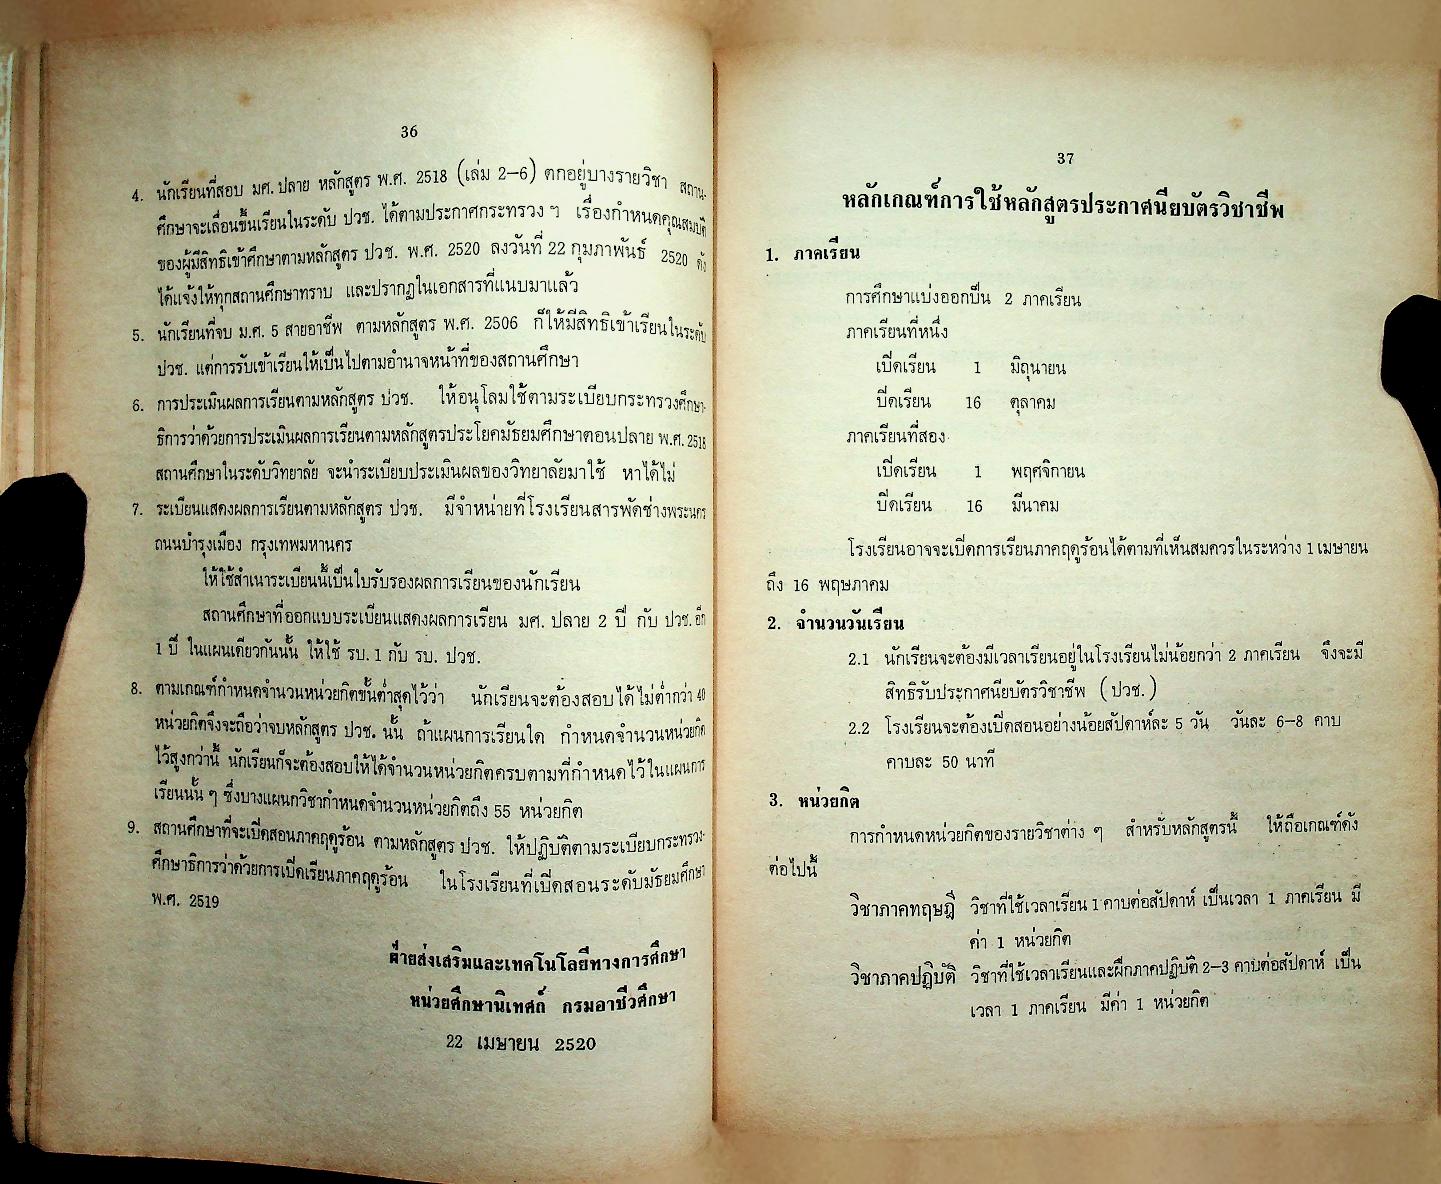 36
4. นักเรียนที่สอบ มศ. ปลาย หลักสูตร พ.ศ. 2518 (เล่ม 2-6) ตกอยู่บางรายวิชา สถาน-
ศึกษาจะเลื่อนขึ้นเรียนในระดับ ปวช. ได้ตามประกาศกระทรวง ฯ เรื่องกำหนดคุณสมบัติ
ของผู้มีสิทธิเข้าศึกษาตามหลักสูตร ปวช. พ.ศ. 2520 ลงวันที่ 22 กุมภาพันธ์ 2520 ดัง
ได้แจ้งให้ทุกสถานศึกษาทราบ และปรากฏในเอกสารที่แนบมาแล้ว
5. นักเรียนที่จบ ม.ศ. 5 สายอาชีพ ตามหลักสูตร พ.ศ. 2506 ก็ให้มีสิทธิเข้าเรียนในระดับ
ปวช. แต่การรับเข้าเรียนให้เป็นไปตามอำนาจหน้าที่ของสถานศึกษา
6. การประเมินผลการเรียนตามหลักสูตร ปวช. ให้อนุโลมใช้ตามระเบียบกระทรวงศึกษา-
ธิการว่าด้วยการประเมินผลการเรียนตามหลักสูตรประโยคมัธยมศึกษาตอนปลาย พ.ศ. 2518
สถานศึกษาในระดับวิทยาลัย จะนำระเบียบประเมินผลของวิทยาลัยมาใช้ หาได้ไม่
7. ระเบียนแสดงผลการเรียนตามหลักสูตร ปวช. มีจำหน่ายที่โรงเรียนสารพัดช่างพระนคร
ถนนบำรุงเมือง กรุงเทพมหานคร
ให้ใช้สำเนาระเบียนนี้เป็นใบรับรองผลการเรียนของนักเรียน
สถานศึกษาที่ออกแบบระเบียนแสดงผลการเรียน มศ. ปลาย 2 ปี กับ ปวช. อีก
1 ปี ในแผนเดียวกันนั้น ให้ใช้ รบ. 1 กับ รบ. ปวช.
8. ตามเกณฑ์กำหนดจำนวนหน่วยกิตขั้นต่ำสุดไว้ว่า นักเรียนจะต้องสอบได้ไม่ต่ำกว่า 40
หน่วยกิตจึงจะถือว่าจบหลักสูตร ปวช. นั้น ถ้าแผนการเรียนใด กำหนดจำนวนหน่วยกิต
ไว้สูงกว่านี้ นักเรียนก็จะต้องสอบให้ได้จำนวนหน่วยกิตครบตามที่กำหนดไว้ในแผนการ
เรียนนั้น ๆ ซึ่งบางแผนกวิชากำหนดจำนวนหน่วยกิตถึง 55 หน่วยกิต
9. สถานศึกษาที่จะเปิดสอนภาคฤดูร้อน ตามหลักสูตร ปวช. ให้ปฏิบัติตามระเบียบกระทรวง-
ศึกษาธิการว่าด้วยการเปิดเรียนภาคฤดูร้อน ในโรงเรียนที่เปิดสอนระดับมัธยมศึกษา
พ.ศ. 2519
ฝ่ายส่งเสริมและเทคโนโลยีทางการศึกษา
หน่วยศึกษานิเทศก์ กรมอาชีวศึกษา
22 เมษายน 2520
37
หลักเกณฑ์การใช้หลักสูตรประกาศนียบัตรวิชาชีพ
1. ภาคเรียน
การศึกษาแบ่งออกป็น 2 ภาคเรียน
ภาคเรียนที่หนึ่ง
เปิดเรียน 1 มิถุนายน
ปิดเรียน 16 ตุลาคม
ภาคเรียนที่สอง
เปิดเรียน 1 พฤศจิกายน
ปิดเรียน 16 มีนาคม
โรงเรียนอาจจะเปิดการเรียนภาคฤดูร้อนได้ตามที่เห็นสมควรในระหว่าง 1 เมษายน
ถึง 16 พฤษภาคม
2. จำนวนวันเรียน
2.1 นักเรียนจะต้องมีเวลาเรียนอยู่ในโรงเรียนไม่น้อยกว่า 2 ภาคเรียน จึงจะมี
สิทธิรับประกาศนียบัตรวิชาชีพ (ปวช.)
2.2 โรงเรียนจะต้องเปิดสอนอย่างน้อยสัปดาห์ละ 5 วัน วันละ 6-8 คาบ
คาบละ 50 นาที
3. หน่วยกิต
การกำหนดหน่วยกิตของรายวิชาต่าง ๆ สำหรับหลักสูตรนี้ ให้ถือเกณฑ์ดัง
ต่อไปนี้
วิชาภาคทฤษฎี วิชาที่ใช้เวลาเรียน 1 คาบต่อสัปดาห์ เป็นเวลา 1 ภาคเรียน มี
ค่า 1 หน่วยกิต
วิชาภาคปฏิบัติ วิชาที่ใช้เวลาเรียนและฝึกภาคปฏิบัติ 2-3 คาบต่อสัปดาห์ เป็น
เวลา 1 ภาคเรียน มีค่า 1 หน่วยกิต